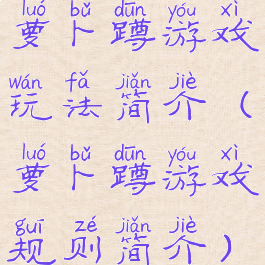 luó bǔ dūn yóu xì
萝卜蹲游戏
wán fǎ jiǎn jiè
玩法简介（
luó bǔ dūn yóu xì
萝卜蹲游戏
guī zé jiǎn jiè
规则简介）